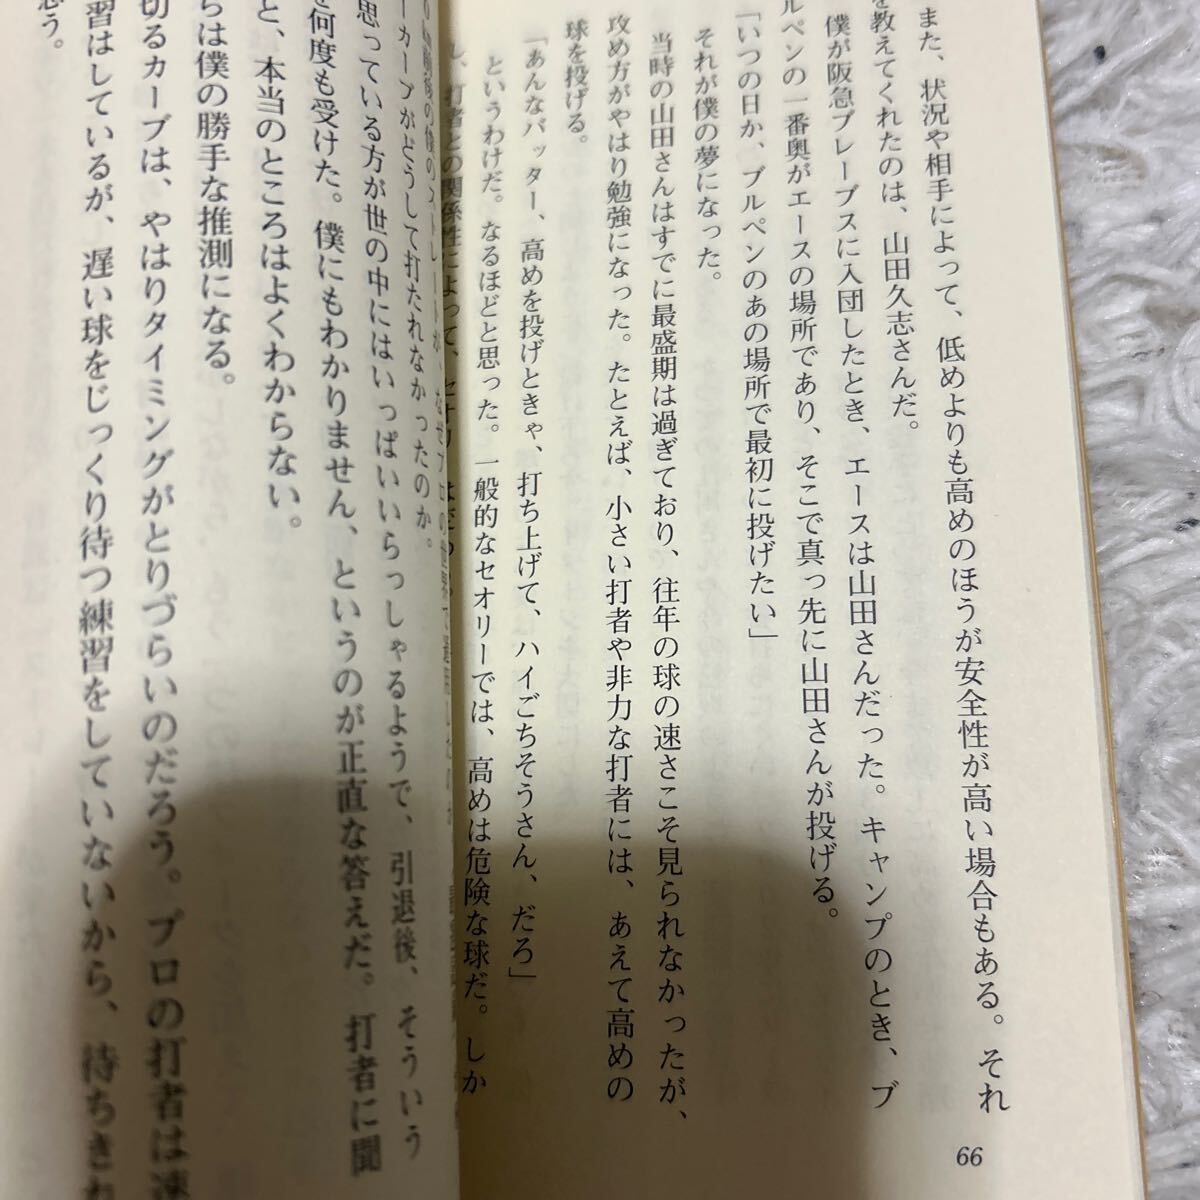 また、状況や相手によって、低めよりも高めのほうが安全性が高い場合もある。それ
を教えてくれたのは、山田久志さんだ。
僕が阪急ブレーブスに入団したとき、エースは山田さんだった。キャンプのとき、ブ
ルペンの一番奥がエースの場所であり、そこで真っ先に山田さんが投げる。
「いつの日か、ブルペンのあの場所で最初に投げたい」
それが僕の夢になった。
当時の山田さんはすでに最盛期は過ぎており、往年の球の速さこそ見られなかったが、
攻め方がやはり勉強になった。たとえば、小さい打者や非力な打者には、あえて高めの
球を投げる。
「あんなバッター、高めを投げときゃ、打ち上げて、ハイごちそうさん、だろ」
というわけだ。なるほどと思った。一般的なセオリーでは、高めは危険な球だ。しか
し、打者との関係性によって、セオリー
66
のストレートが、なぜプロの世界で通用したのか
カーブがどうして打たれなかったのか。
思っている方が世の中にはいっぱいいらっしゃるようで、引退後、そういう
を何度も受けた。僕にもわかりません、というのが正直な答えだ。打者に聞
と、本当のところはよくわからない。
らは僕の勝手な推測になる。
切るカーブは、やはりタイミングがとりづらいのだろう。プロの打者は速
習はしているが、遅い球をじっくり待つ練習をしていないから、待ちきれ
思う。